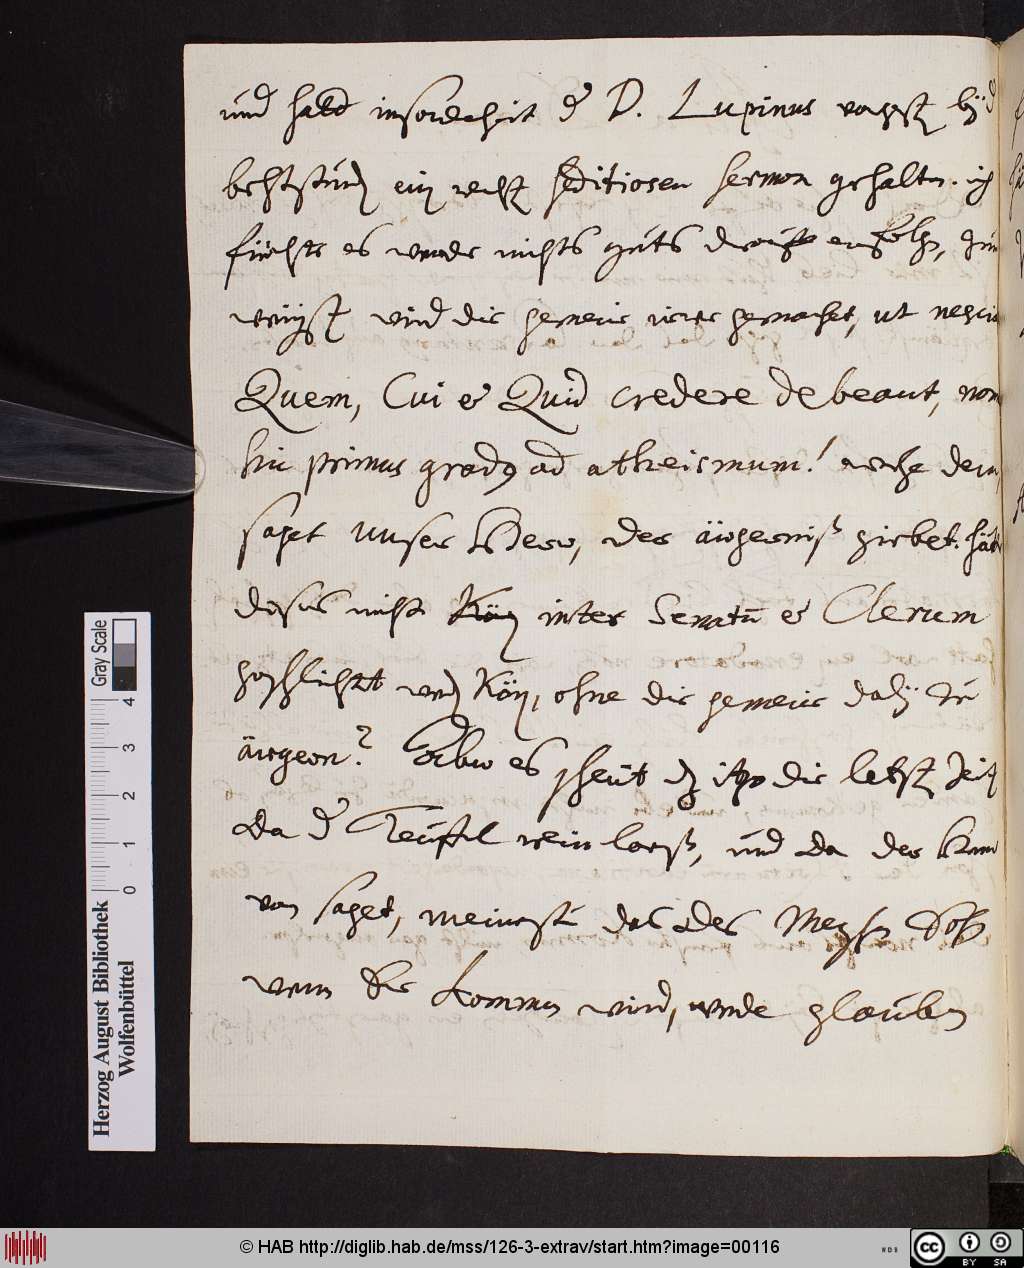 und hatt insonderheit d. D. Lupinus nechst bey d
betstund ein recht seditiosen sermon gehalten. ich
fürchte es werde nichts guts drauß erfolgen, zum
wenigst wird die gemeine irre gemachet, ut nesciant
Quem, Cui & Quid credere debeant, non
hic primus gradus ad atheismum! wehe dem,
saget unser Herr, der ärgerniß giebet. hätt
dieses nicht inter Senatū & Clerum
werden können, ohne die gemeine dabey zu
ärgeren? es scheint dz itzo die letzte Zeit
da d Teuffel rein loeß, und da der Herr
von saget, meinestu das des Menschen Sohn
wenn Er kommen wird, werde glauben
Herzog August Bibliothek
Wolfenbüttel
Gray Scale
0 1 2 3 4
© HAB http://diglib.hab.de/mss/126-3-extrav/start.htm?image=00116
cc BY SA